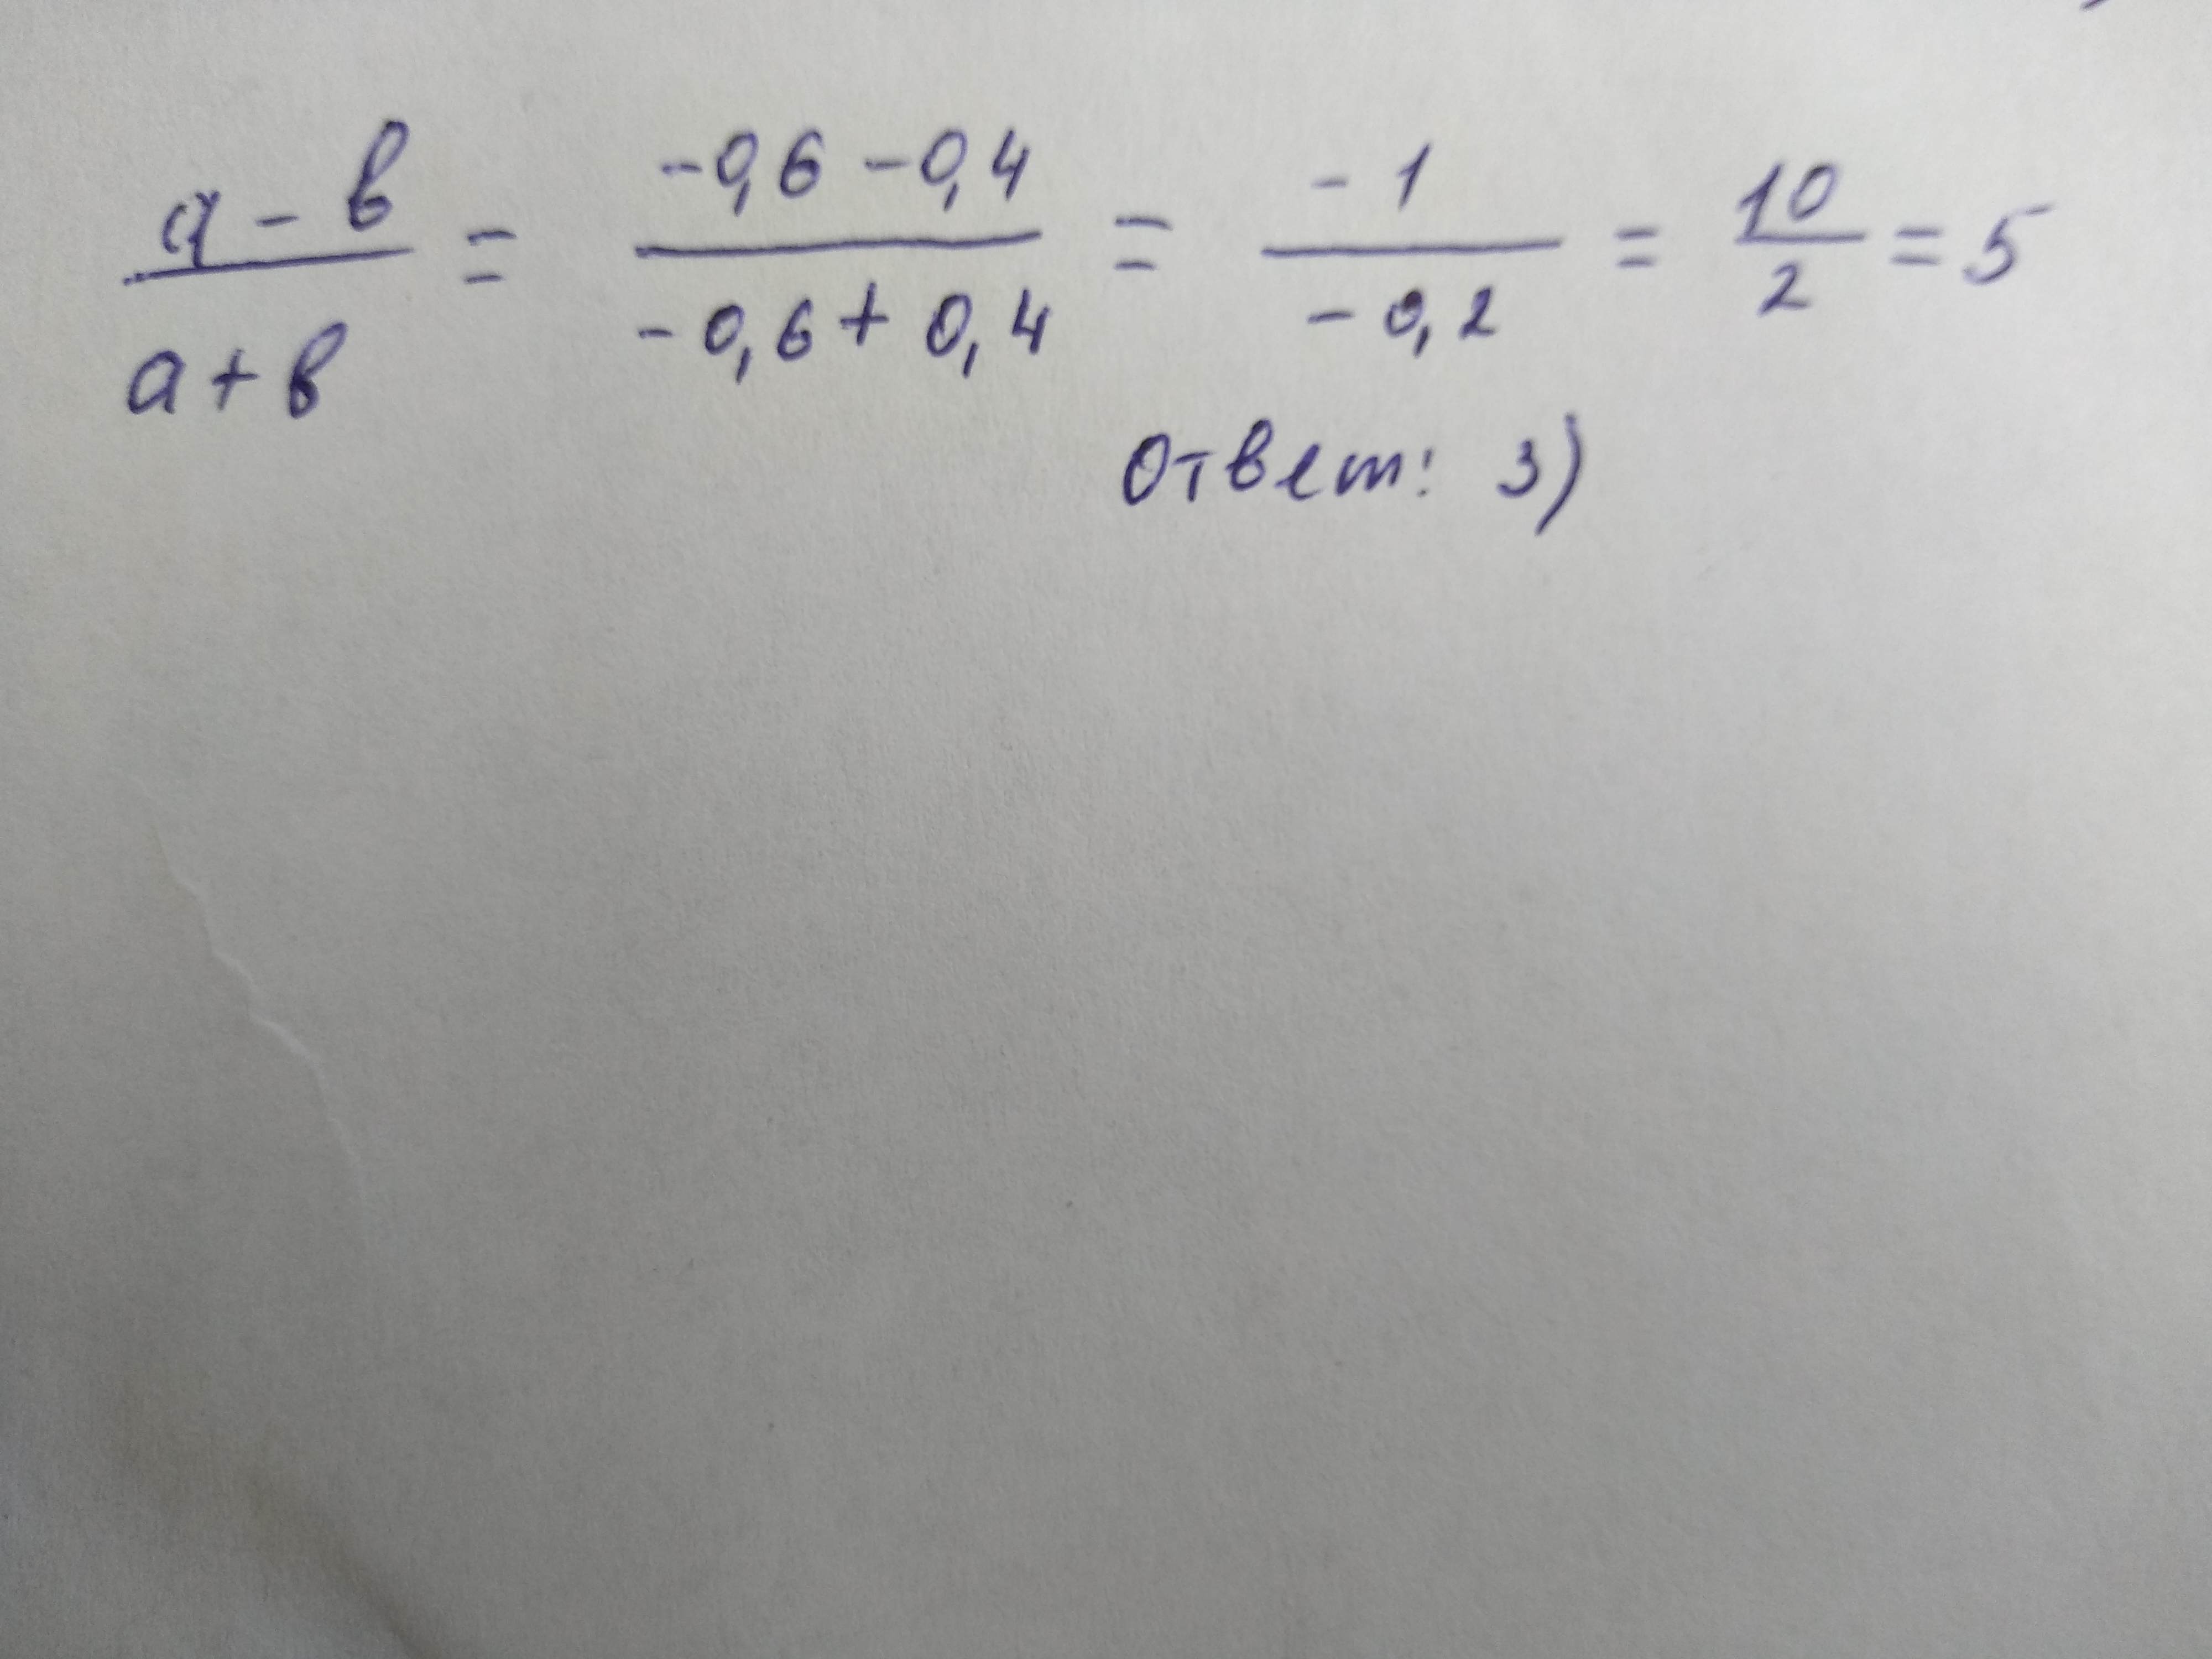 (a - b)/(a + b) = (-0,6 - 0,4)/(-0,6 + 0,4) = (-1)/(-0,2) = 10/2 = 5
Ответ: 3)